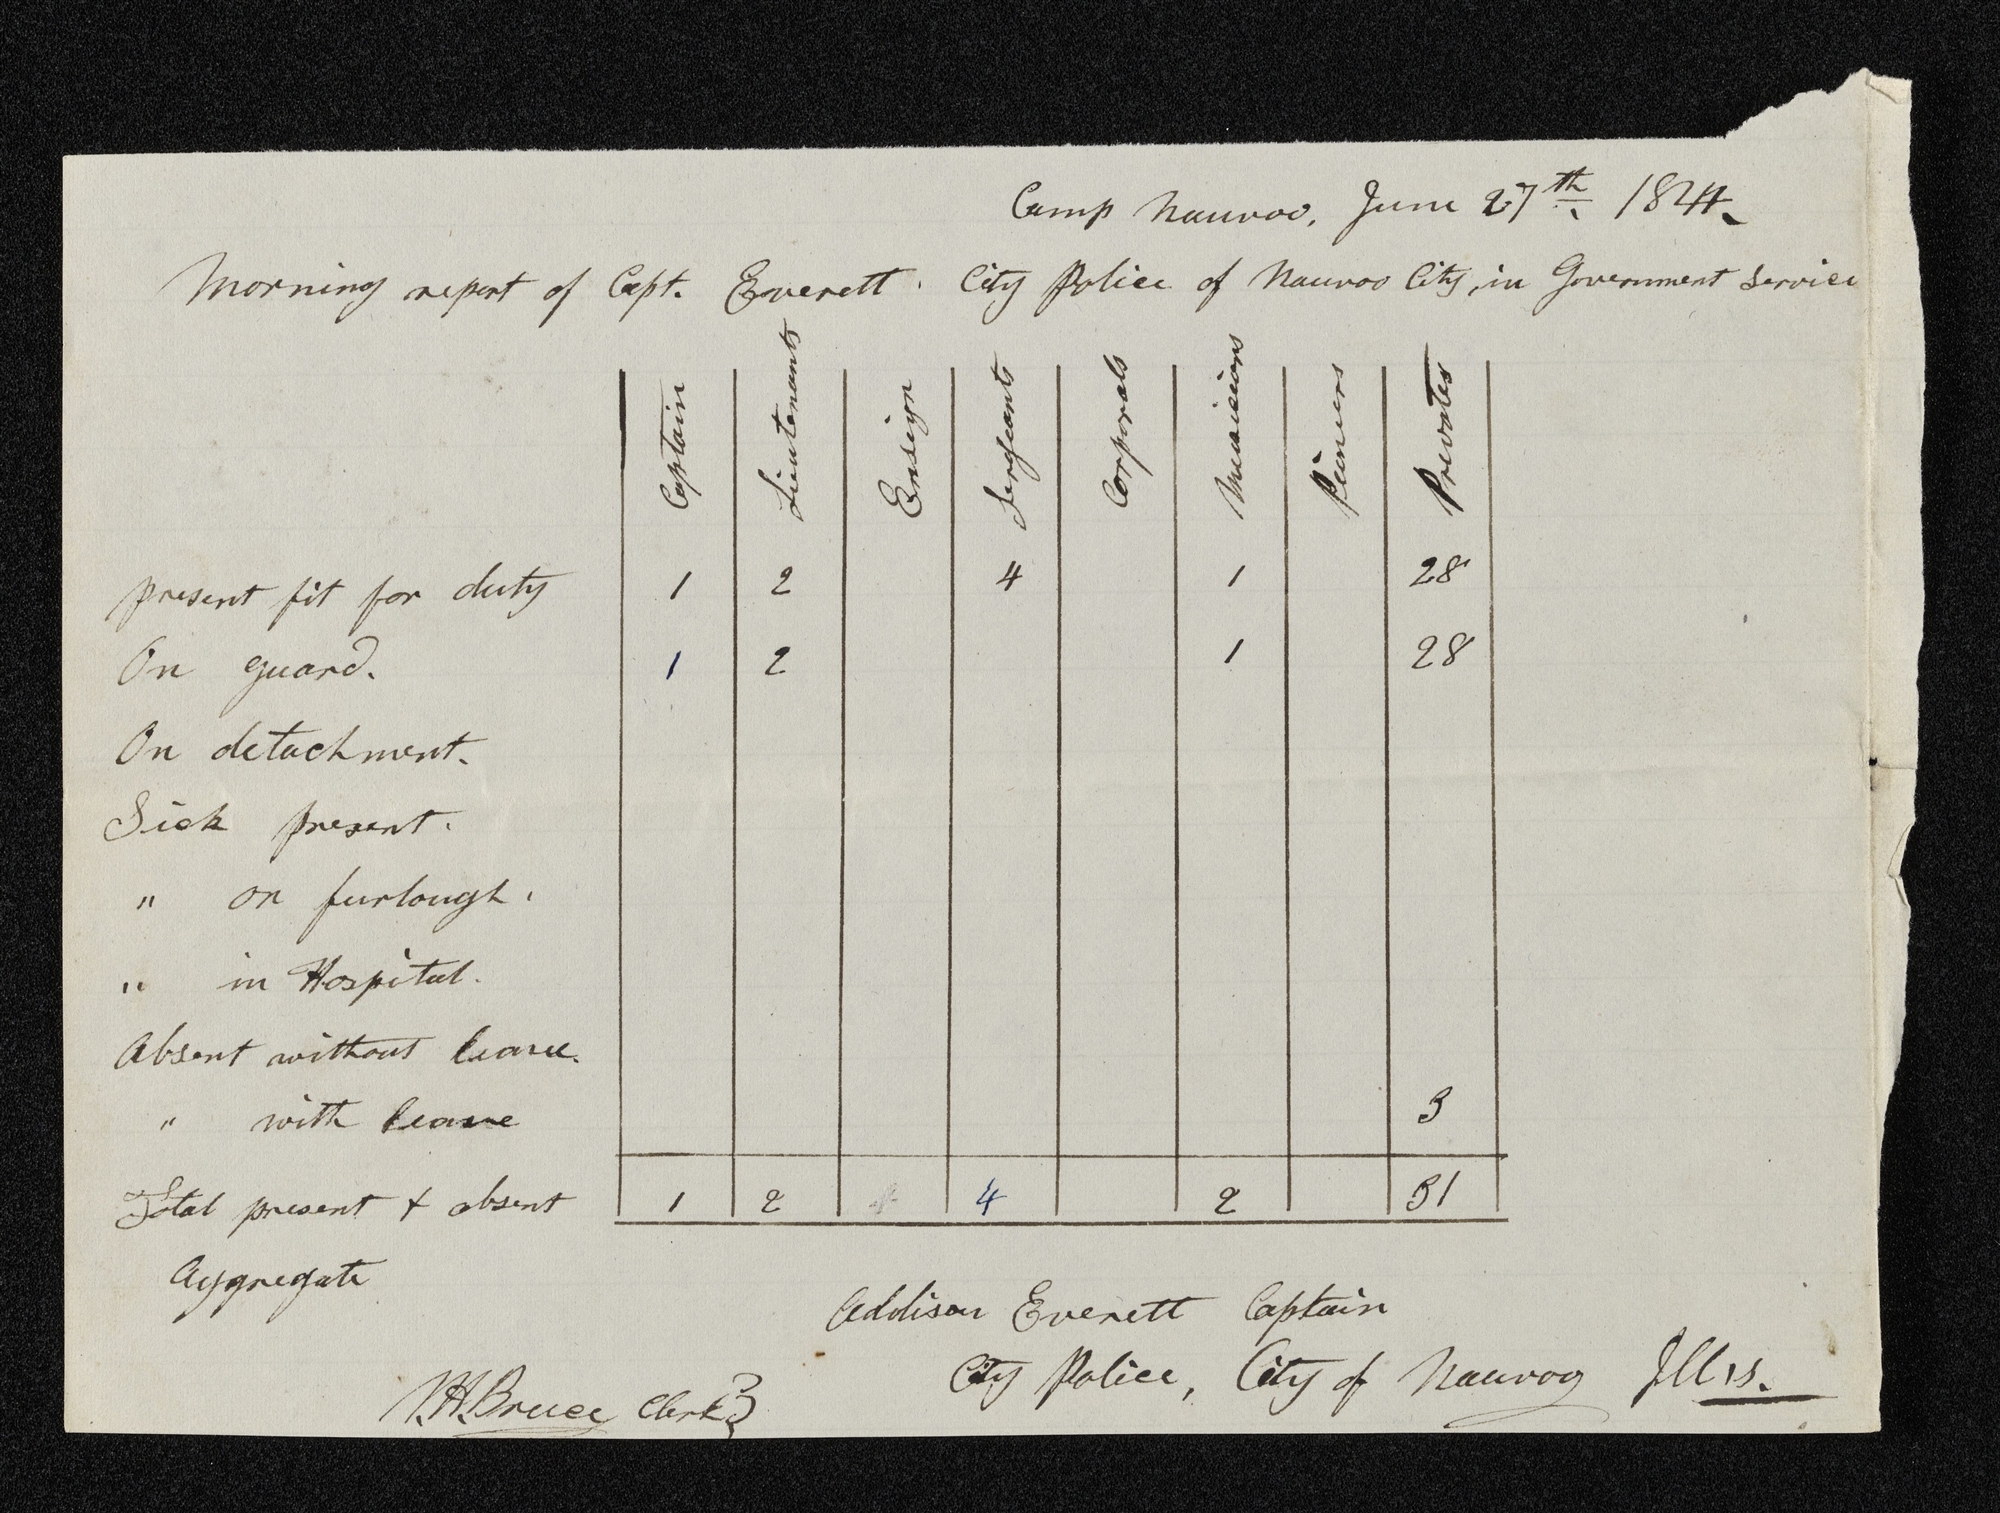 Camp Nauvoo, June 27th 1844
Morning report of Capt. Everett. City Police of Nauvoo City, in Government Service
Captain Lieutenants Ensign Sergeants Corporals Musicions Pioners Privates
present fit for duty 1 2 4 1 28
On guard. 1 2 1 28
On detachment.
Sick present.
" on furlough.
" in Hospital.
Absent without leave.
" with leave 3
Total present & absent 1 2 4 2 31
Aggregate
Addison Everett Captain
City Police, City of Nauvoo Ills.
Bruce Clerk